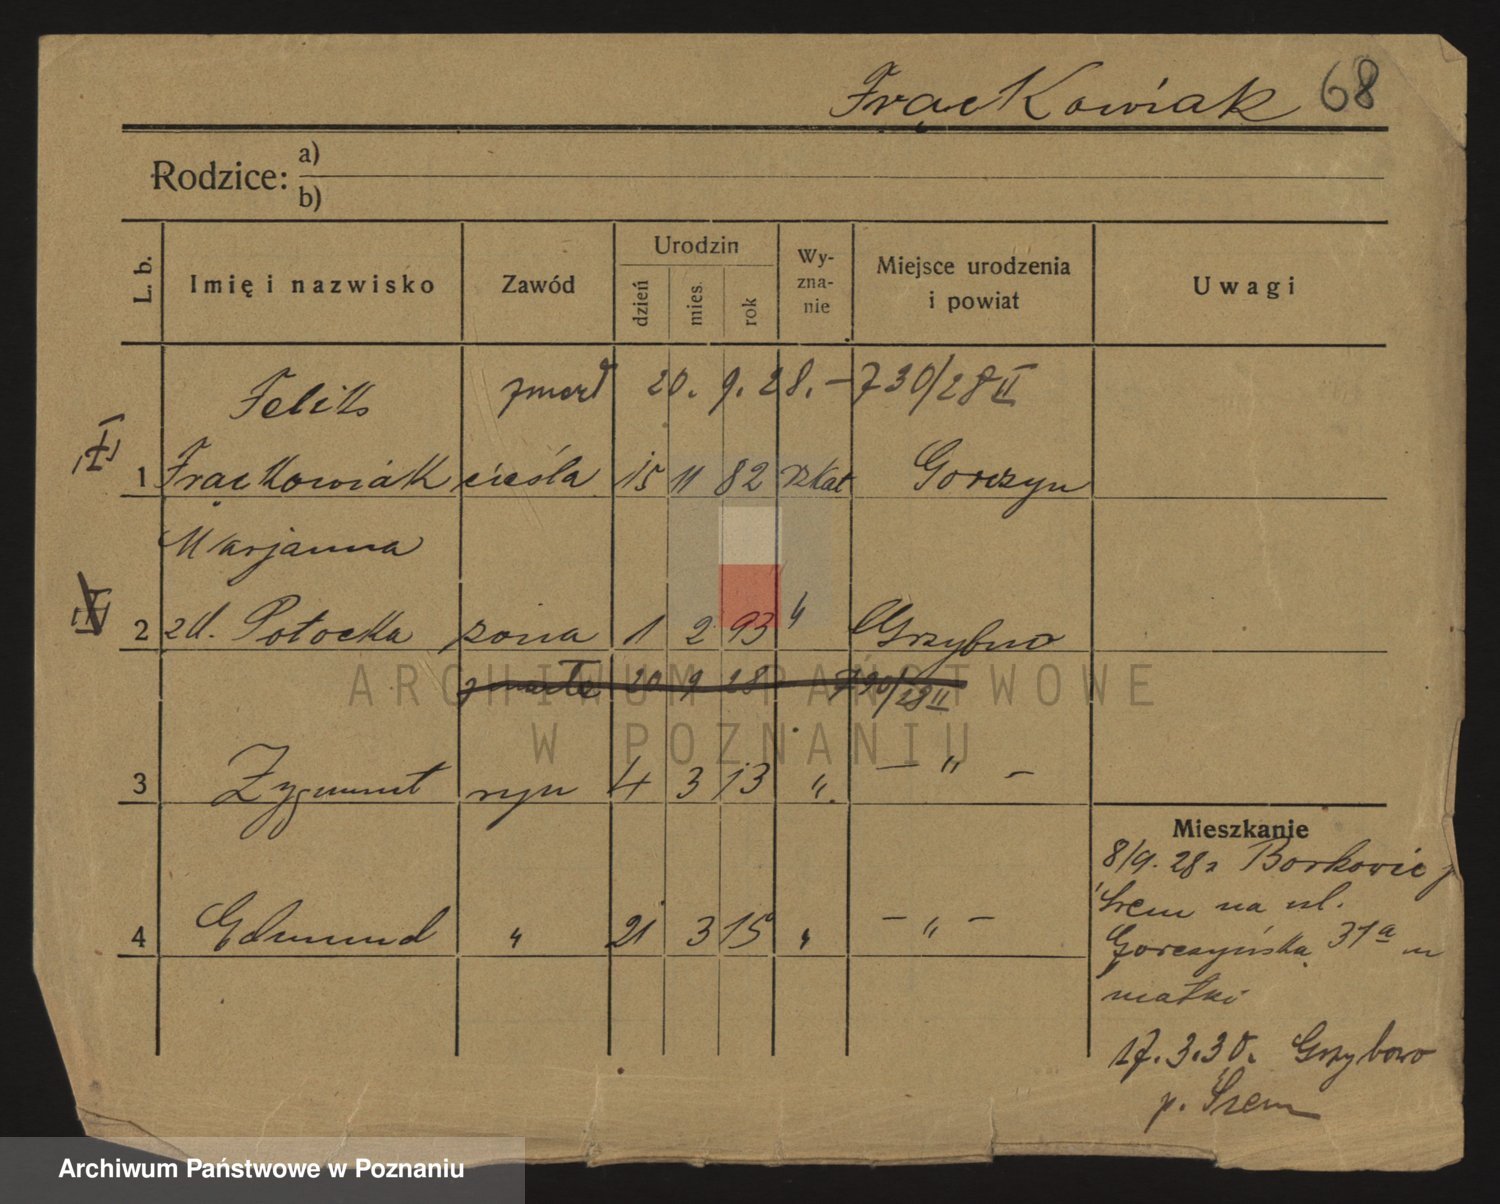 Frąckowiak 68
Rodzice: a)
b)
L. b. Imię i nazwisko Zawód Urodzin dzień mies. rok Wy-zna-nie Miejsce urodzenia i powiat Uwagi
Feliks zmarł 20. 9. 28. – 730/28 II
1 Frąckowiak cieśla 15 11 82 rzkat Gorczyn
Marjanna
2 zd. Potocka żona 1 2 93 " Grzybno
zmarła 20 9 28 730/28 II
3 Zygmunt syn 4 3 13 " – " –
Mieszkanie
8/9. 28 z Borkowic p
Śrem na ul.
4 Edmund " 21 3 15 " – " –
Gorczyńska 31a u
matki
17. 3. 30. Grzybowo
p. Śrem
ARCHIWUM PAŃSTWOWE
W POZNANIU
Archiwum Państwowe w Poznaniu